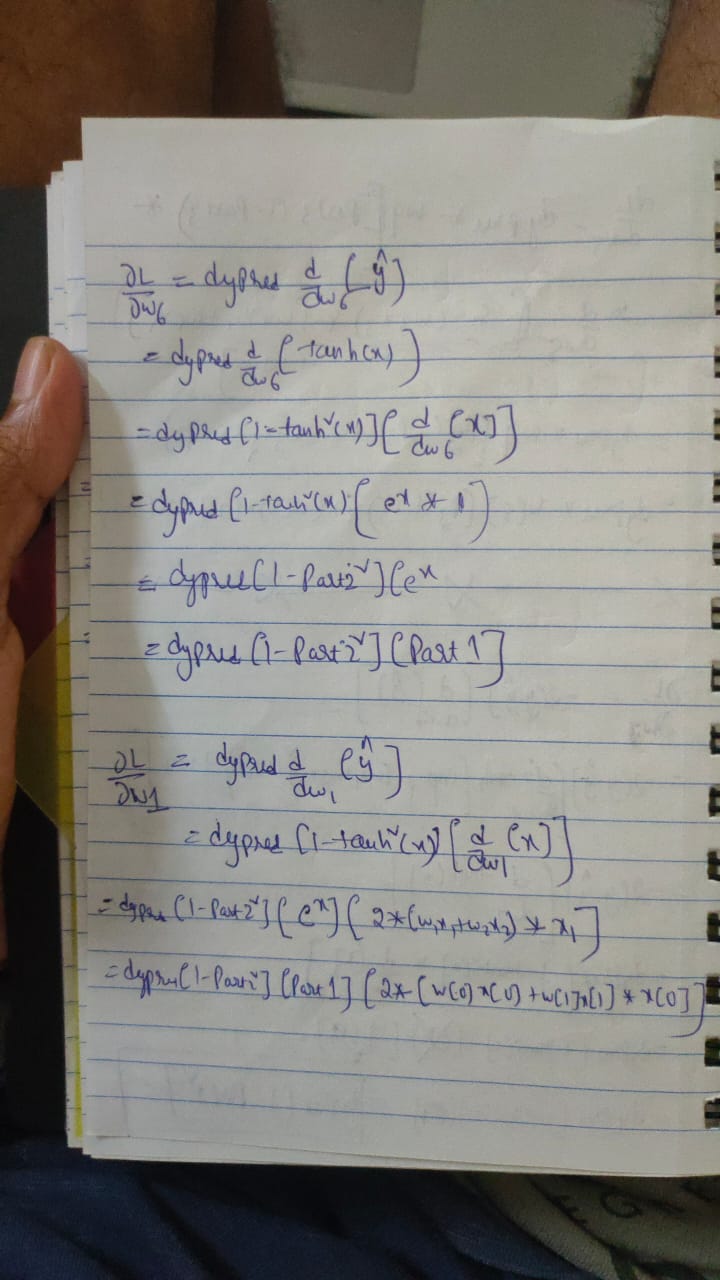 ∂L/∂w6 = dypred d/dw6 [ŷ]
= dypred d/dw6 [tanh(x)]
= dypred [1-tanh²(x)] [d/dw6 [x]]
= dypred [1-tanh²(x)] [e^x * 1]
= dypred [1-Part2²] [e^x
= dypred [1-Part2²] [Part 1]
∂L/∂w1 = dypred d/dw1 [ŷ]
= dypred [1-tanh²(x)] [d/dw1 [x]]
= dypred [1-Part2²] [e^x] [2*(w₁x₁+w₂x₂) * x₁]
= dypred [1-Part2²] [Part 1] [2*[w[0]x[0]+w[1]x[1] * x[0]]